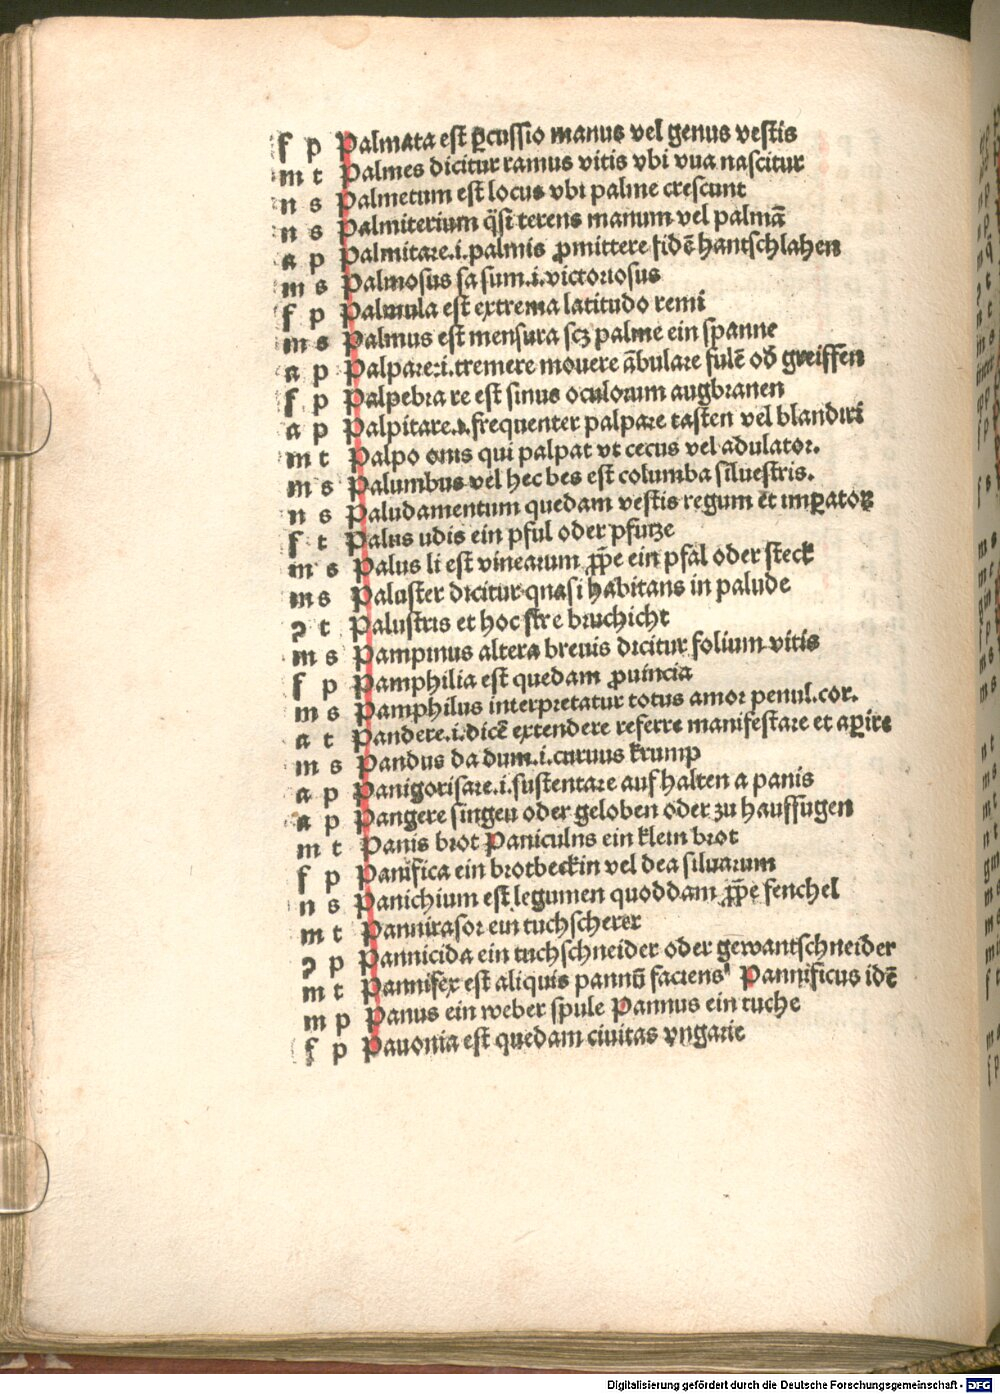 f p Palmata est ꝑcussio manus vel genus vestis
m t Palmes dicitur ramus vitis vbi vua nascitur
n s Palmetum est locus vbi palme crescunt
n s Palmiterium q̄si terens manum vel palmā
a p Palmitare.i.palmis ꝓmittere fidē hantschlahen
m s Palmosus sa sum.i.victoriosus
f p Palmula est extrema latitudo remi
m s Palmus est mensura scꝫ palme ein spanne
a p Palpare.i.tremere mouere ābulare fulē od̄ greiffen
f p Palpebra re est sinus oculorum augbranen
a p Palpitare.i.frequenter palpare tasten vel blandiri
m t Palpo onis qui palpat vt cecus vel adulator.
m s Palumbus vel hec bes est columba siluestris.
n s Paludamentum quedam vestis regum et imꝑatoꝝ
f t Palus udis ein pful oder pfutze
m s Palus li est vinearum ꝓp̄e ein pfal oder steck
m s Paluster dicitur quasi habitans in palude
ꝯ t Palustris et hoc stre bruchicht
m s Pampinus altera breuis dicitur folium vitis
f p Pamphilia est quedam ꝓuincia
m s Pamphilus interpretatur totus amor penul.cor.
a t Pandere.i.dicē extendere referre manifestare et aꝑire
m s Pandus da dum.i.curuus krump
a p Panigorisare.i.sustentare auf halten a panis
a p Pangere singen oder geloben oder zu hauffugen
m t Panis brot Paniculus ein klein brot
f p Panifica ein brotbeckin vel dea siluarum
n s Panichium est legumen quoddam ꝓp̄e fenchel
m t Pannirasor ein tuchscherer
ꝯ p Pannicida ein tuchschneider oder gewantschneider
m t Pannifex est aliquis pannū faciens Pannificus idē
m p Panus ein weber spule Pannus ein tuche
f p Pauonia est quedam ciuitas vngarie
Digitalisierung gefördert durch die Deutsche Forschungsgemeinschaft - DFG